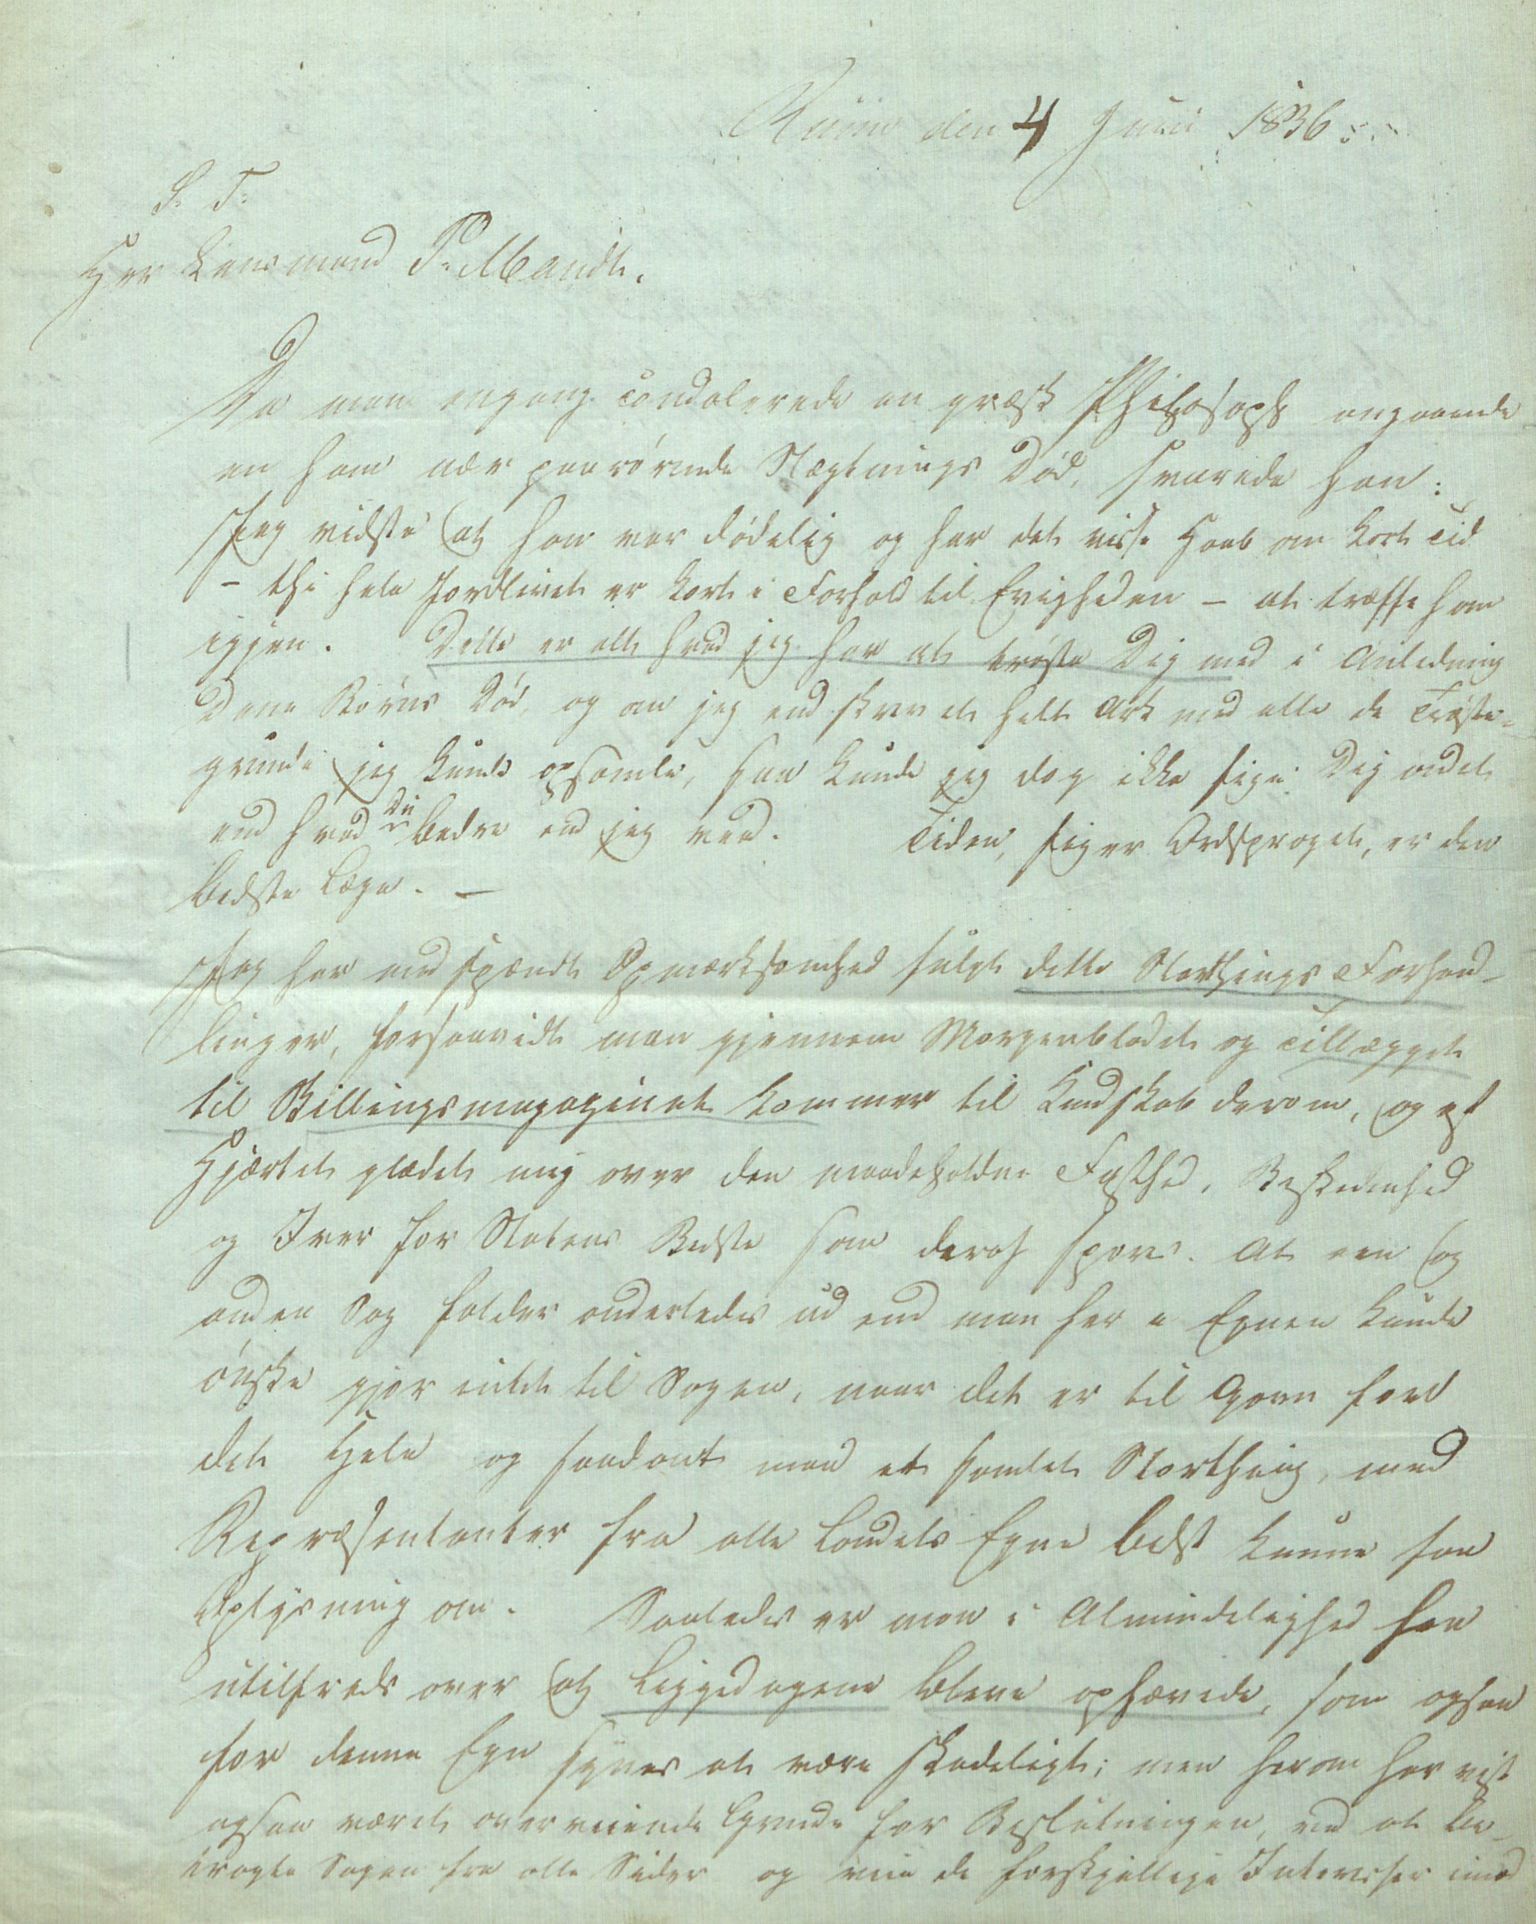 den 4 Juni 1836
S. T.
Herr Lensmand P. Mandt.
Da man engang condolerede en græsk Philosoph angaaende
en ham nær paarørende Slægtnings Død, svarede han:
Jeg vidste at han var dødelig og har det visse Haab om kort Tid
– thi hele Jordlivet er kort i Forhold til Evigheden – at træffe ham
igjen. Dette er alt hvad jeg har at trøste Dig med i Anledning
Dine Børns Død, og om jeg end skrev et helt Ark med alle de Trøste-
grunde jeg kunde opsamle, saa kunde jeg dog ikke sige Dig andet
end hvad Du bedre end jeg veed. Tiden, siger Ordsproget, er den
bedste Læge. –
Jeg har med spændt Opmærksomhed fulgt dette Storthings Forhand-
linger, forsaavidt man gjennem Morgenbladet og Tillægget
til Billingsmagazinet kommer til Kundskab derom, og af
Hjærtet glædet mig over den maadeholdne Fasthed, Beskedenhed
og Iver for Statens Bedste som deraf spores. At een og
anden Sag falder anderledes ud end man her i Egnen kunde
ønske gjør intet til Sagen, naar det er til Gavn for
det Hele og saadant maa et samlet Storthing, med
Repræsentanter fra alle Landets Egne bedst kunne faa
Oplysning om. Saaledes er man i Almindelighed her
utilfreds over at Liggedagene bleve ophævede, som ogsaa
for denne Egn synes at være skadeligt; men herom har vist
ogsaa været overveiende Grunde for Beslutningen, ved at be-
tragte Sagen fra alle Sider og veie de forskjellige Interesser imod